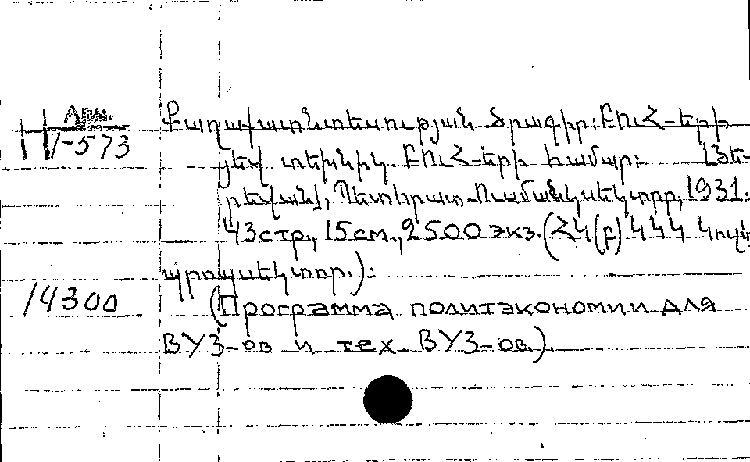 Арм.
I/-573
Քաղաքատնտեսության ծրագիր: ԲՈՒՀ-երի
յեվ տեխնիկ. ԲՈՒՀ-երի համար: [Յե-
րեվան], Պետհրատ. Ուսմանկսեկտոր, 1931.
43 стр., 15 см., 2500 экз. (ՀԿ(բ)Կ ԿԿ Կուլտ
պրոպսեկտոր.):
14300
(Программа политэкономии для
ВУЗ-ов и тех. ВУЗ-ов).